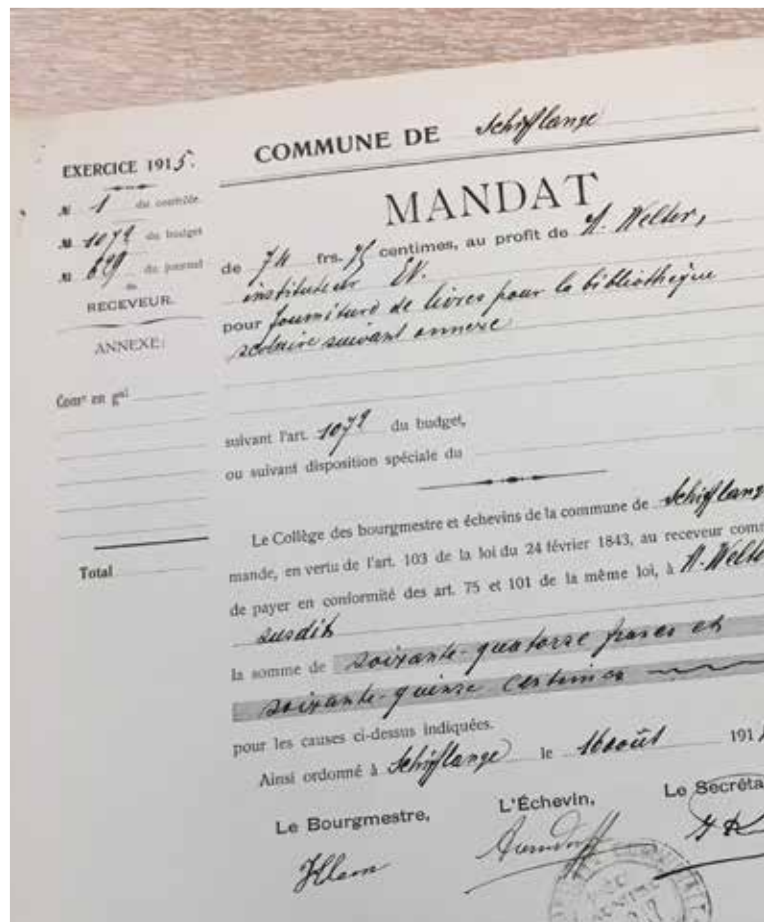 COMMUNE DE Schifflange
EXERCICE 1915.
№ 1 du contrôle
№ 1072 du budget
№ 629 du journal
du
RECEVEUR.
ANNEXE:
Comᵉ en gᵃˡ
Total
MANDAT
de 74 frs. 75 centimes, au profit de N. Welter,
instituteur EV.
pour fourniture de livres pour la bibliothèque
scolaire suivant annexe
suivant l'art. 1072 du budget,
ou suivant disposition spéciale du
Le Collège des bourgmestre et échevins de la commune de Schifflange
mande, en vertu de l'art. 103 de la loi du 24 février 1843, au receveur com
de payer en conformité des art. 75 et 101 de la même loi, à N. Welte
susdit
la somme de soixante-quatorze francs et
soixante-quinze centimes
pour les causes ci-dessus indiquées.
Ainsi ordonné à Schifflange le 16 août 191
Le Bourgmestre, L'Échevin, Le Secréta